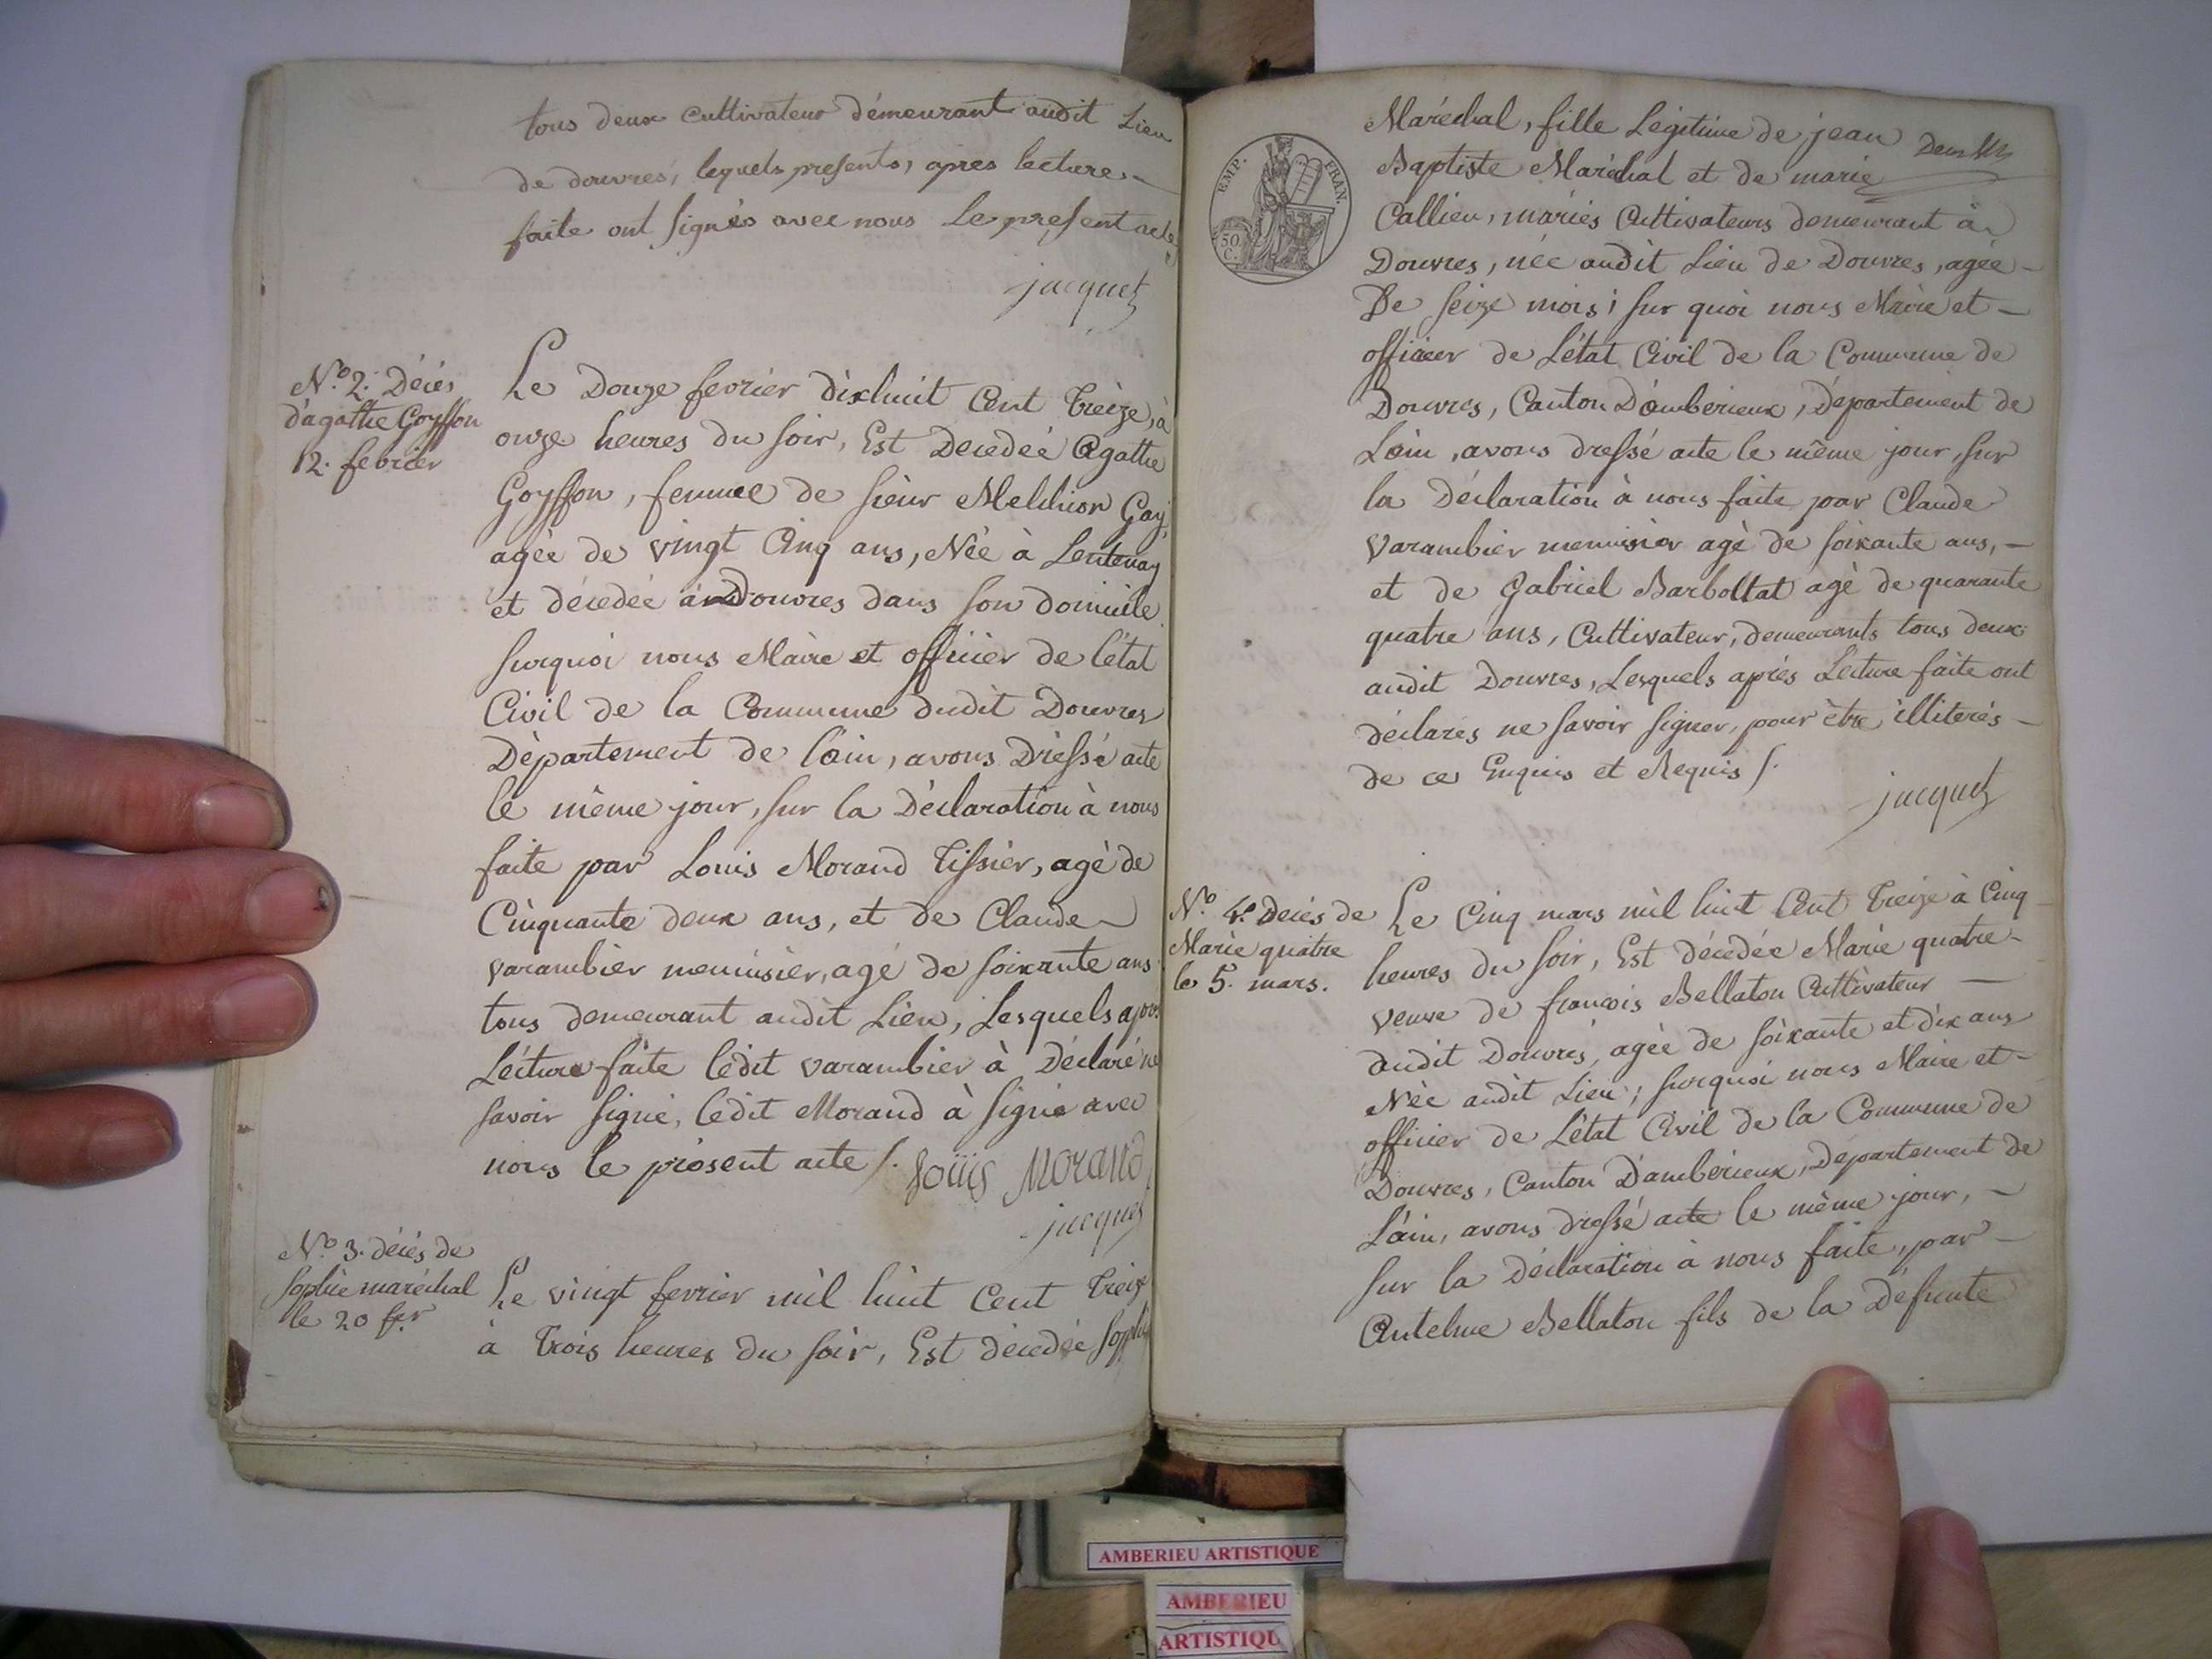 tous deux cultivateur démeurant audit Lieu
de douvres, lequels presents, apres lecture
faite ont signés avec nous Le present acte
jacquet
N.º 2. Décès
d'agathe Goyffon
12. fevrier
Le Douze fevrier dixhuit Cent Treize, à
onze heures du soir, Est Decedée Agathe
Goyffon, femme de sieur Melchior Gay,
agée de vingt Cinq ans, Née à Lentenay
et décedée à Douvres dans son domicile
surquoi nous Maire et officier de l'état
Civil de la Commune dudit Douvres
Département de l'ain, avons Dressé acte
le même jour, sur la Déclaration à nous
faite par Louis Morand Tissier, agé de
Cinquante deux ans, et de Claude
varambier menuisier, agé de soixante ans
tous demeurant audit Lieu, Lesquels apres
Lecture faite ledit varambier à Déclaré ne
savoir signé, ledit Morand à signé avec
nous le présent acte /.
Loüis Morand
jacquet
N.º 3. décès de
sophie maréchal
le 20 fer
Le vingt fevrier mil huit Cent Treize
à Trois heures du soir, Est décedée sophie
EMP. FRAN.
50
C.
Maréchal, fille Legitime de jean
Baptiste Maréchal et de marie
Callieu, mariés Cultivateurs demeurant à
Douvres, née audit Lieu de Douvres, agée
De seize mois; sur quoi nous Maire et
officier de L'état Civil de la Commune de
Douvres, Canton D'amberieux, Département de
L'ain, avons dressé acte le même jour, sur
la Déclaration à nous faite par Claude
Varambier menuisier agé de soixante ans,
et de Gabriel Barbollat agé de quarante
quatre ans, Cultivateur, demeurants tous deux
audit Douvres, Lesquels après Lecture faite ont
déclarés ne savoir signer, pour être illiterés
de ce Enquis et Requis /.
jacquet
N.º 4. Decès de
Marie quatre
le 5. mars.
Le Cinq mars mil huit Cent Treize à Cinq
heures du soir, Est décedée Marie quatre
veuve de francois Bellaton Cultivateur
dudit Douvres, agée de soixante et dix ans
Née audit Lieu; surquoi nous Maire et
officier de L'état Civil de la Commune de
Douvres, Canton D'amberieux, Département de
L'ain, avons dressé acte le même jour,
sur la Déclaration à nous faite, par
Antelme Bellaton fils de la Défunte
AMBERIEU ARTISTIQUE
AMBERIEU
ARTISTIQU